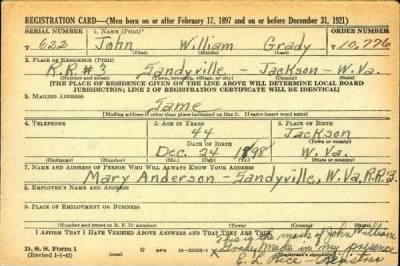 REGISTRATION CARD—(Men born on or after February 17, 1897 and on or before December 31, 1921)
SERIAL NUMBER 1. NAME (Print) ORDER NUMBER
T 622 John William Grady T10,776
(First) (Middle) (Last)
2. PLACE OF RESIDENCE (Print)
R.R.#3 Sandyville - Jackson - W.Va.
(Number and street) (Town, township, village, or city) (County) (State)
[THE PLACE OF RESIDENCE GIVEN ON THE LINE ABOVE WILL DETERMINE LOCAL BOARD
JURISDICTION; LINE 2 OF REGISTRATION CERTIFICATE WILL BE IDENTICAL]
3. MAILING ADDRESS
Same
[Mailing address if other than place indicated on line 2. If same insert word same]
4. TELEPHONE 5. AGE IN YEARS 6. PLACE OF BIRTH
44 Jackson
DATE OF BIRTH (Town or county)
Dec. 24 1898 W.Va.
(Exchange) (Number) (Mo.) (Day) (Yr.) (State or country)
7. NAME AND ADDRESS OF PERSON WHO WILL ALWAYS KNOW YOUR ADDRESS
Mary Anderson - Sandyville, W.Va. R.R.3
8. EMPLOYER'S NAME AND ADDRESS
9. PLACE OF EMPLOYMENT OR BUSINESS
(Number and street or R. F. D. number) (Town) (County) (State)
I AFFIRM THAT I HAVE VERIFIED ABOVE ANSWERS AND THAT THEY ARE TRUE.
This is the mark of John William
D. S. S. Form 1 X Grady made in my presence
(Revised 1-1-42) GPO (Registrant's signature)
E. L. Rice - Registrar